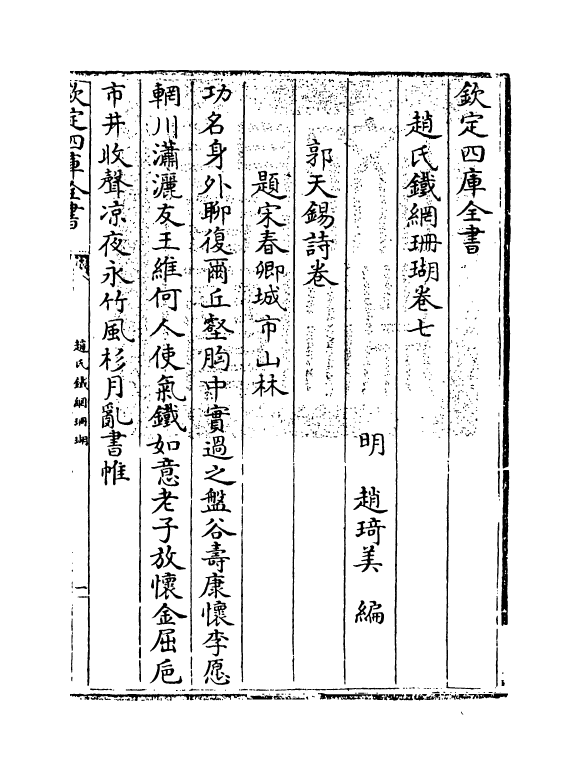 欽定四庫全書
趙氏鐵網珊瑚卷七
明 趙琦美 編
郭天錫詩卷
題宋春卿城市山林
功名身外聊復爾丘壑胸中實過之盤谷壽康懷李愿
輞川瀟灑友王維何人使氣鐵如意老子放懷金屈巵
市井收聲凉夜永竹風杉月亂書帷
欽定四庫全書
趙氏鐵網珊瑚
一